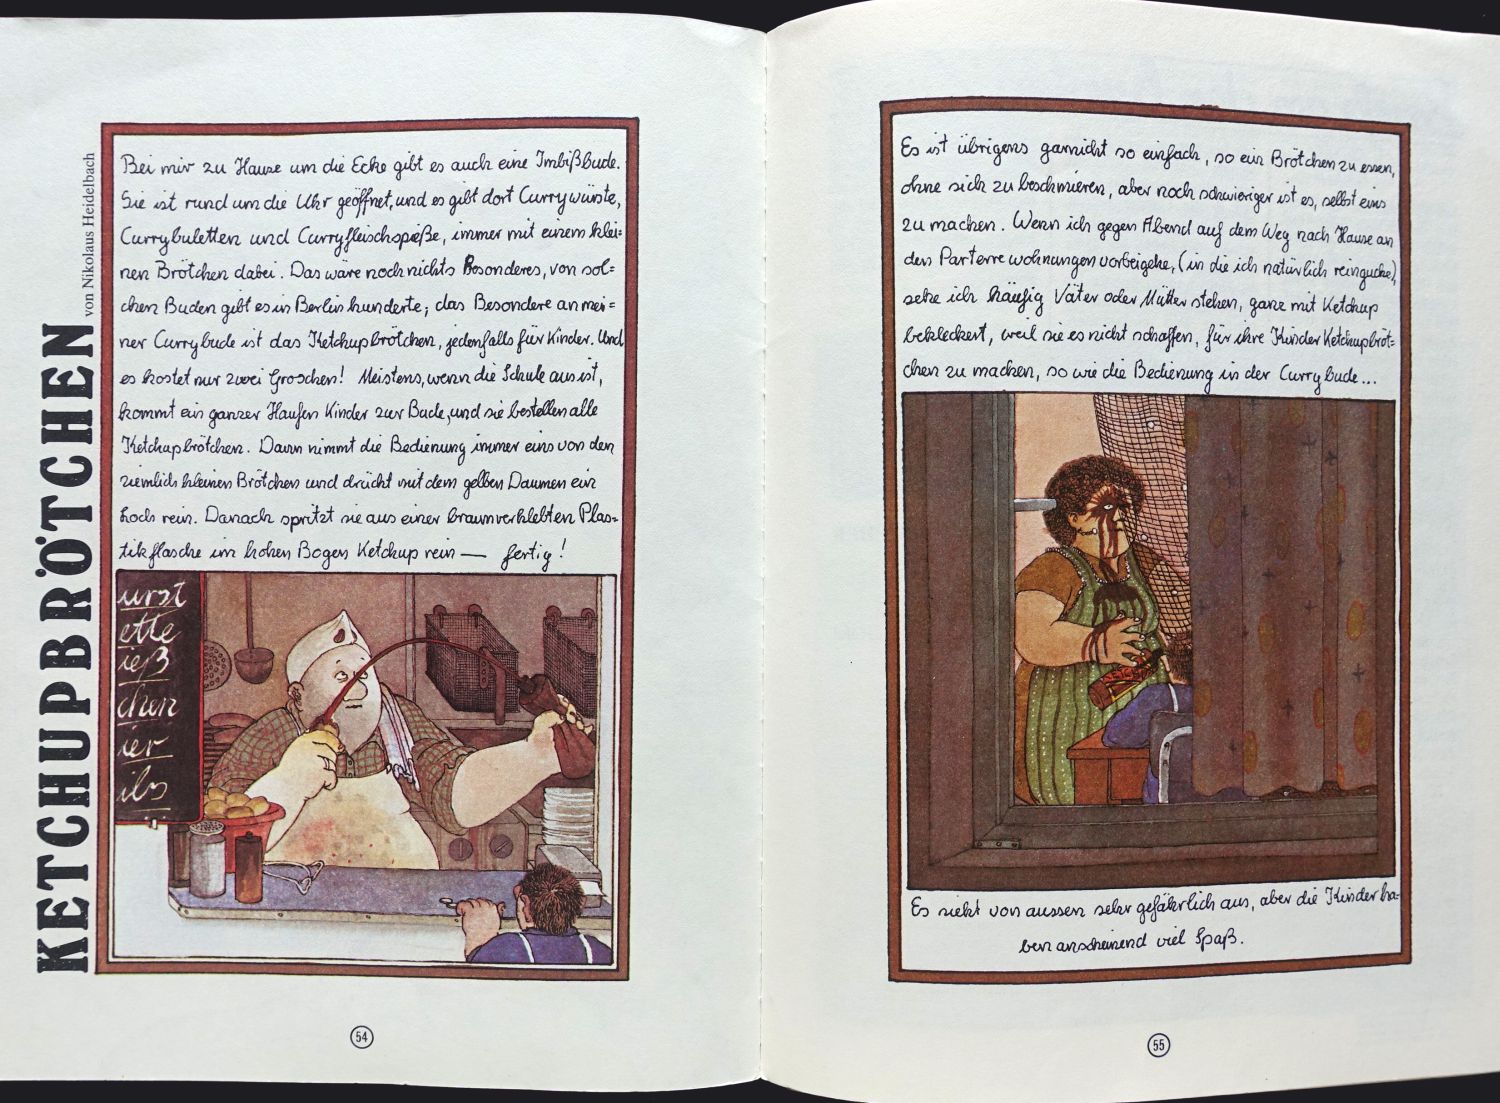 KETCHUPBRÖTCHEN
von Nikolaus Heidelbach
Bei mir zu Hause um die Ecke gibt es auch eine Imbißbude.
Sie ist rund um die Uhr geöffnet, und es gibt dort Currywürste,
Currybuletten und Curryfleischspieße, immer mit einem klei=
nen Brötchen dabei. Das wäre noch nichts Besonderes, von sol=
chen Buden gibt es in Berlin hunderte; das Besondere an mei=
ner Currybude ist das Ketchupbrötchen, jedenfalls für Kinder. Und
es kostet nur zwei Groschen! Meistens, wenn die Schule aus ist,
kommt ein ganzer Haufen Kinder zur Bude, und sie bestellen alle
Ketchupbrötchen. Dann nimmt die Bedienung immer eins von den
ziemlich kleinen Brötchen und drückt mit dem gelben Daumen ein
Loch rein. Danach spritzt sie aus einer braunverklebten Plas=
tikflasche im hohen Bogen Ketchup rein — fertig!
urst
ette
ieß
chen
ier
ils
54
Es ist übrigens garnicht so einfach, so ein Brötchen zu essen,
ohne sich zu beschmieren, aber noch schwieriger ist es, selbst eins
zu machen. Wenn ich gegen Abend auf dem Weg nach Hause an
den Parterrewohnungen vorbeigehe, (in die ich natürlich reingucke),
sehe ich häufig Väter oder Mütter stehen, ganz mit Ketchup
bekleckert, weil sie es nicht schaffen, für ihre Kinder Ketchupbröt=
chen zu machen, so wie die Bedienung in der Currybude...
Es sieht von aussen sehr gefährlich aus, aber die Kinder ha=
ben anscheinend viel Spaß.
55